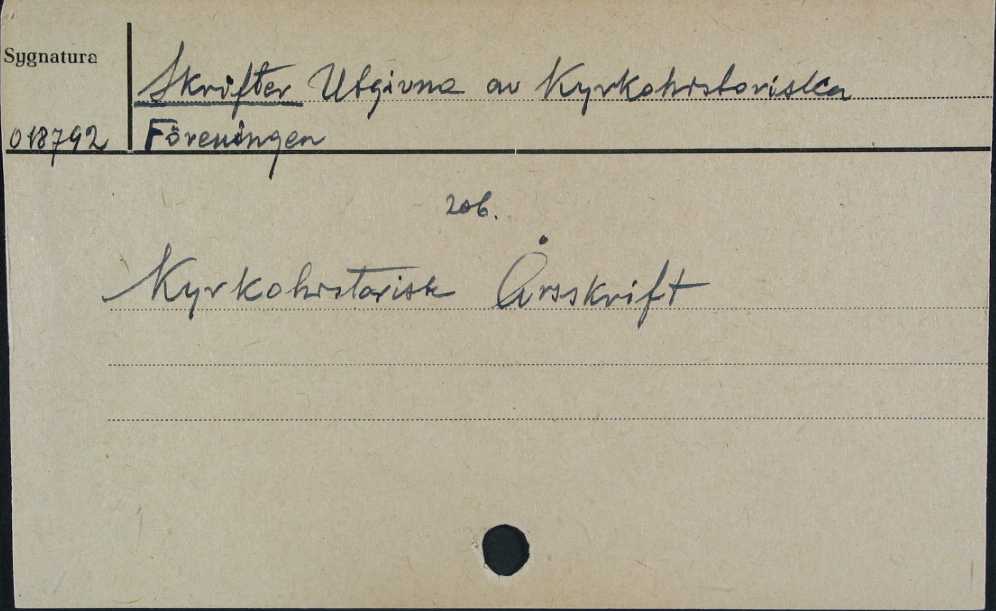 Sygnatura
Skrifter Utgivna av Kyrkohistoriska
018792 Föreningen
zob.
Kyrkohistorisk Årsskrift